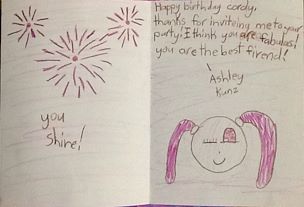 you
shine!
Happy birthday cordy,
thanks for inviteing me to your
party! I think you are fabulas!
you are the best firend!
Ashley
Kunz